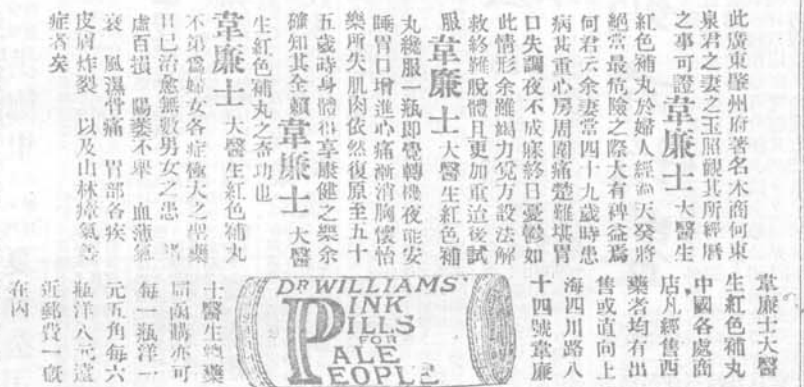 此廣東肇州府著名木商何東
泉君之妻之玉照觀其所經曆
之事可證韋廉士大醫生
紅色補丸於婦人經適天癸將
絕當最危險之際大有裨益焉
何君云余妻當四十九歲時患
病甚重心房周圍痛楚難堪胃
口失調夜不成寐終日憂鬱如
此情形余雖竭力覓方設法解
救終難脫體且更加重迨後試
服韋廉士大醫生紅色補
丸纔服一瓶即覺轉機夜能安
睡胃口增進心痛漸消胸懷怡
樂所失肌肉依然復原至五十
五歲時身體得享康健之樂余
確知其全賴韋廉士大醫
生紅色補丸之奇功也
韋廉士大醫生紅色補丸
不第爲婦女各症極大之聖藥
且已治愈無數男女之患
虛百損 陽萎不舉 血薄氣
衰 風濕骨痛 胃部各疾
皮膚炸裂 以及山林瘴氣等
症者矣
韋廉士大醫
生紅色補丸
中國各處商
店凡經售西
藥者均有出
售或直向上
海四川路八
十四號韋廉
士醫生藥
局函購亦可
每一瓶洋一
元五角每六
瓶洋八元遠
近郵費一概
在內
DR WILLIAMS'
PINK
PILLS
FOR
PALE
PEOPLE